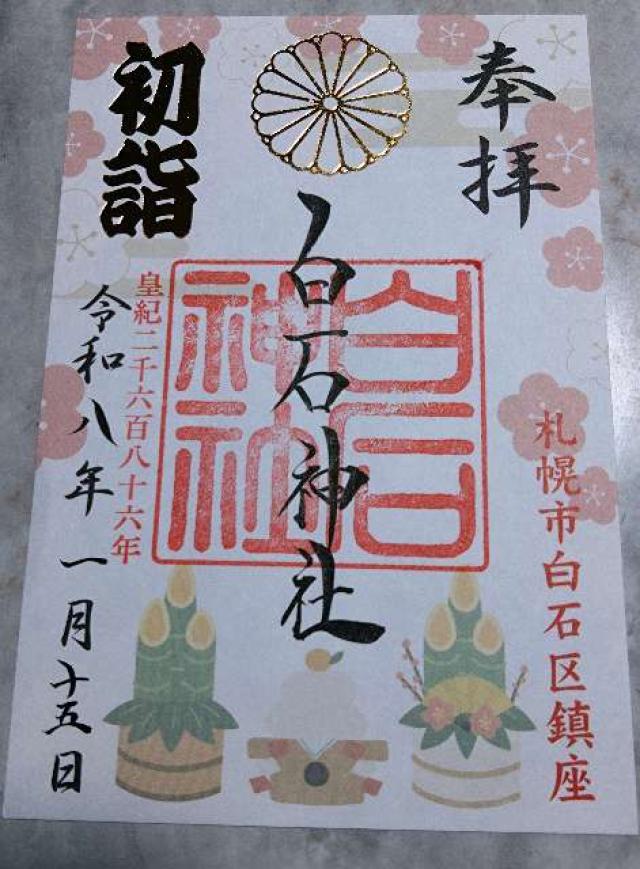 奉拝
札幌市白石区鎮座
白石神社
白石神社
初詣
皇紀二千六百八十六年
令和八年一月十五日